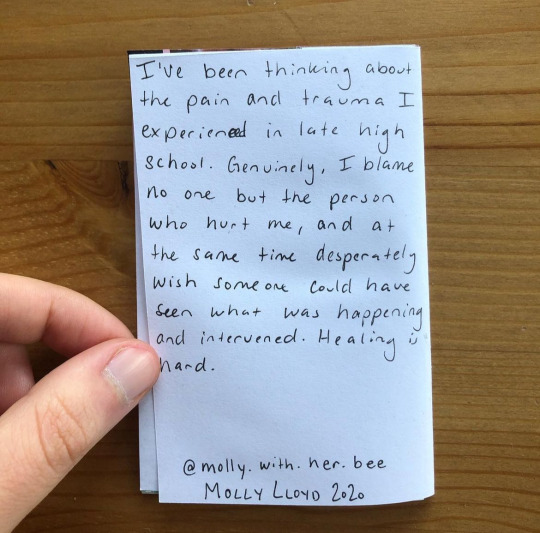 I've been thinking about
the pain and trauma I
experienced in late high
school. Genuinely, I blame
no one but the person
who hurt me, and at
the same time desperately
wish someone could have
seen what was happening
and intervened. Healing is
hard.
@molly.with.her.bee
MOLLY LLOYD 2020